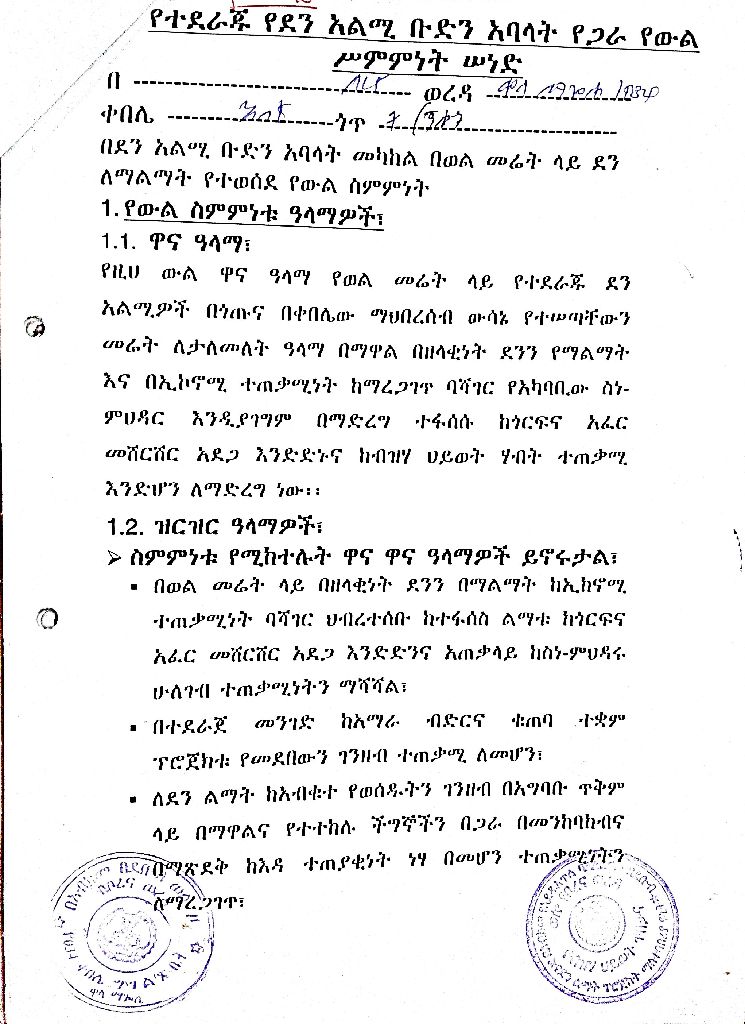 የተደራጁ የደን አልሚ ቡድን አባላት የጋራ የውል
ሥምምነት ሠነድ
በ ---------------------------------- ወረዳ --------------------
ቀበሌ --------------------- ጎጥ ------------------------------
በደን አልሚ ቡድን አባላት መካከል በወል መሬት ላይ ደን
ለማልማት የተወሰደ የውል ስምምነት
1. የውል ስምምነቱ ዓላማዎች፣
1.1. ዋና ዓላማ፣
የዚህ ውል ዋና ዓላማ የወል መሬት ላይ የተደራጁ ደን
አልሚዎች በጎጡና በቀበሌው ማህበረሰብ ውሳኔ የተሠጣቸውን
መሬት ለታለመለት ዓላማ በማዋል በዘላቂነት ደንን የማልማት
እና በኢኮኖሚ ተጠቃሚነት ከማረጋገጥ ባሻገር የአካባቢው ስነ-
ምህዳር እንዲያገግም በማድረግ ተፋሰሱ ከጎርፍና አፈር
መሸርሸር አደጋ እንድድኑና ከብዝሃ ህይወት ሃብት ተጠቃሚ
እንድሆን ለማድረግ ነው፡፡
1.2. ዝርዝር ዓላማዎች፣
➢ ስምምነቱ የሚከተሉት ዋና ዋና ዓላማዎች ይኖሩታል፣
▪ በወል መሬት ላይ በዘላቂነት ደንን በማልማት ከኢኮኖሚ
ተጠቃሚነት ባሻገር ህብረተሰቡ ከተፋሰስ ልማቱ ከጎርፍና
አፈር መሸርሸር አደጋ እንድድንና አጠቃላይ ከስነ-ምህዳሩ
ሁለገብ ተጠቃሚነትን ማሻሻል፣
▪ በተደራጀ መንገድ ከአማራ ብድርና ቁጠባ ተቋም
ፕሮጀክቱ የመደበውን ገንዘብ ተጠቃሚ ለመሆን፣
▪ ለደን ልማት ከአብቁተ የወሰዱትን ገንዘብ በአግባቡ ጥቅም
ላይ በማዋልና የተተከሉ ችግኞችን በጋራ በመንከባከብና
በማጽደቅ ከእዳ ተጠያቂነት ነፃ በመሆን ተጠቃሚነትን
ለማረጋገጥ፣